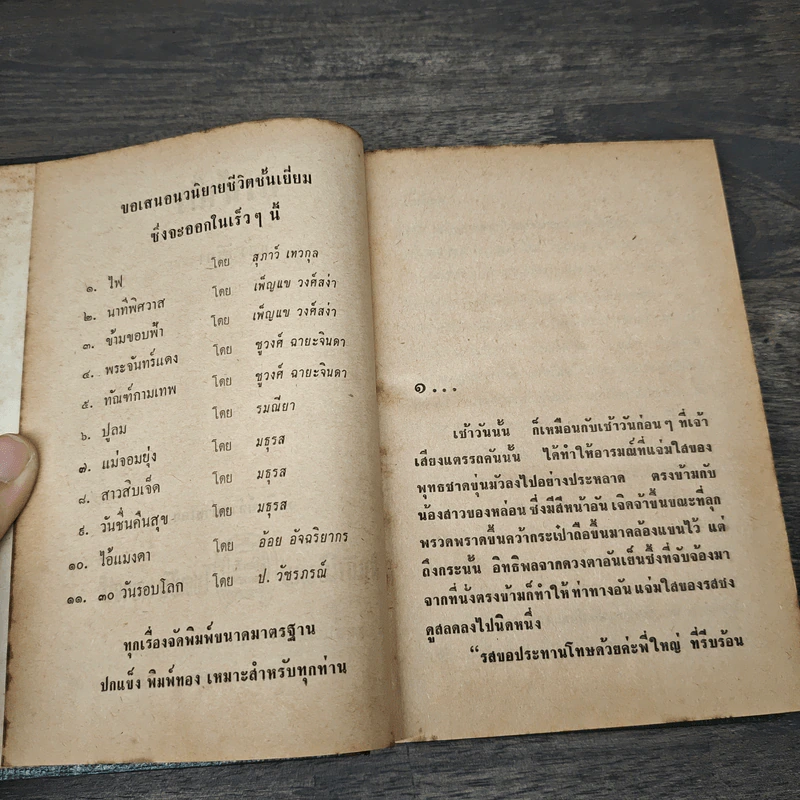 ขอเสนอนวนิยายชีวิตชั้นเยี่ยม
ซึ่งจะออกในเร็วๆ นี้
๑. ไฟ โดย สุภาว์ เทวกุล
๒. นาทีพิศวาส โดย เพ็ญแข วงศ์สง่า
๓. ข้ามขอบฟ้า โดย เพ็ญแข วงศ์สง่า
๔. พระจันทร์แดง โดย ชูวงศ์ ฉายะจินดา
๕. ทัณฑ์กามเทพ โดย ชูวงศ์ ฉายะจินดา
๖. ปูลม โดย รมณียา
๗. แม่จอมยุ่ง โดย มธุรส
๘. สาวสิบเจ็ด โดย มธุรส
๙. วันชื่นคืนสุข โดย มธุรส
๑๐. ไอ้แมงดา โดย อ้อย อัจฉริยากร
๑๑. ๓๐ วันรอบโลก โดย ป. วัชรภรณ์
ทุกเรื่องจัดพิมพ์ขนาดมาตรฐาน
ปกแข็ง พิมพ์ทอง เหมาะสำหรับทุกท่าน
๑...
เช้าวันนั้น ก็เหมือนกับเช้าวันก่อนๆ ที่เจ้า
เสียงแตรรถคันนั้น ได้ทำให้อารมณ์ที่แจ่มใสของ
พุทธชาดขุ่นมัวลงไปอย่างประหลาด ตรงข้ามกับ
น้องสาวของหล่อน ซึ่งมีสีหน้าอัน เจิดจ้าขึ้นขณะที่ลุก
พรวดพราดขึ้นคว้ากระเป๋าถือขึ้นมาคล้องแขนไว้ แต่
ถึงกระนั้น อิทธิพลจากดวงตาอันเย็นซึ้งที่จับจ้องมา
จากที่นั่งตรงข้ามก็ทำให้ ท่าทางอัน แจ่มใสของรสชง
ดูสลดลงไปนิดหนึ่ง
“รสขอประทานโทษด้วยค่ะพี่ใหญ่ ที่รีบร้อน